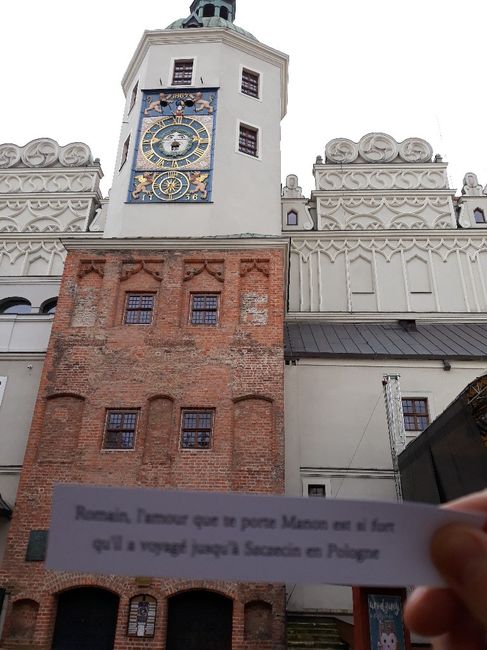 1736
Romain, l'amour que te porte Manon est si fort
qu'il a voyagé jusqu'à Szczecin en Pologne